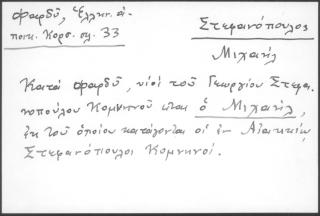 Φαρδῦ, Ἑλλην. ἀ-
ποικ. Κορσ. σελ. 33
Στεφανόπουλος
Μιχαήλ
Κατὰ Φαρδῦ, υἱὸς τοῦ Γεωργίου Στεφα-
νοπούλου Κομνηνοῦ εἶναι ὁ Μιχαήλ,
ἐκ τοῦ ὁποίου κατάγονται οἱ ἐν Αἰακκίῳ
Στεφανόπουλοι Κομνηνοί.